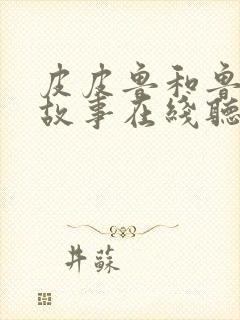 皮皮鲁和鲁
故事在綫聽
井蘇